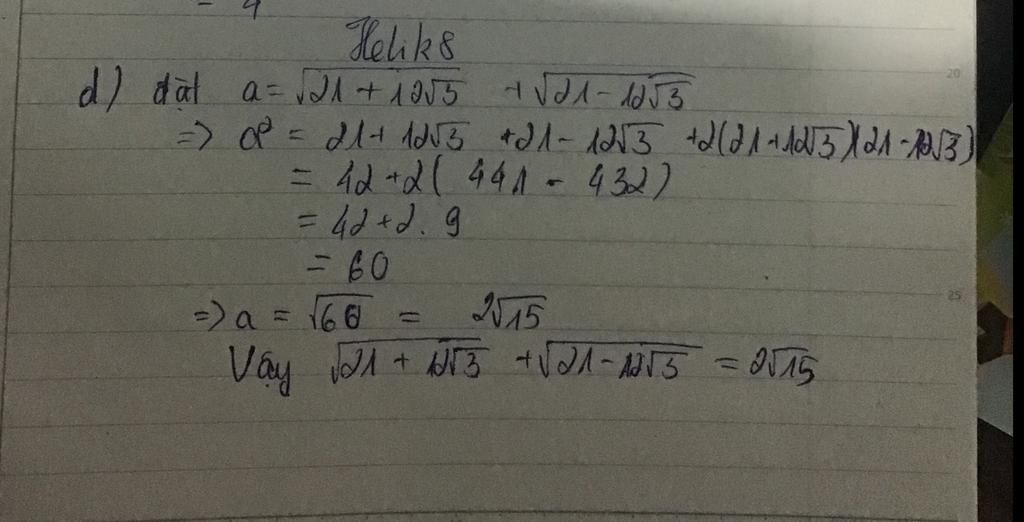 - 4
Helik8
d) đặt a = √(21 + 12√3) + √(21 - 12√3)
=> a² = 21 + 12√3 + 21 - 12√3 + 2(21 + 12√3)(21 - 12√3)
= 42 + 2( 441 - 432)
= 42 + 2. 9
= 60
=> a = √60 = 2√15
Vậy √(21 + 12√3) + √(21 - 12√3) = 2√15
20
25